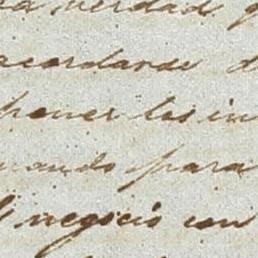 verdad
acordarse d
poner los in
uando para
negocio con